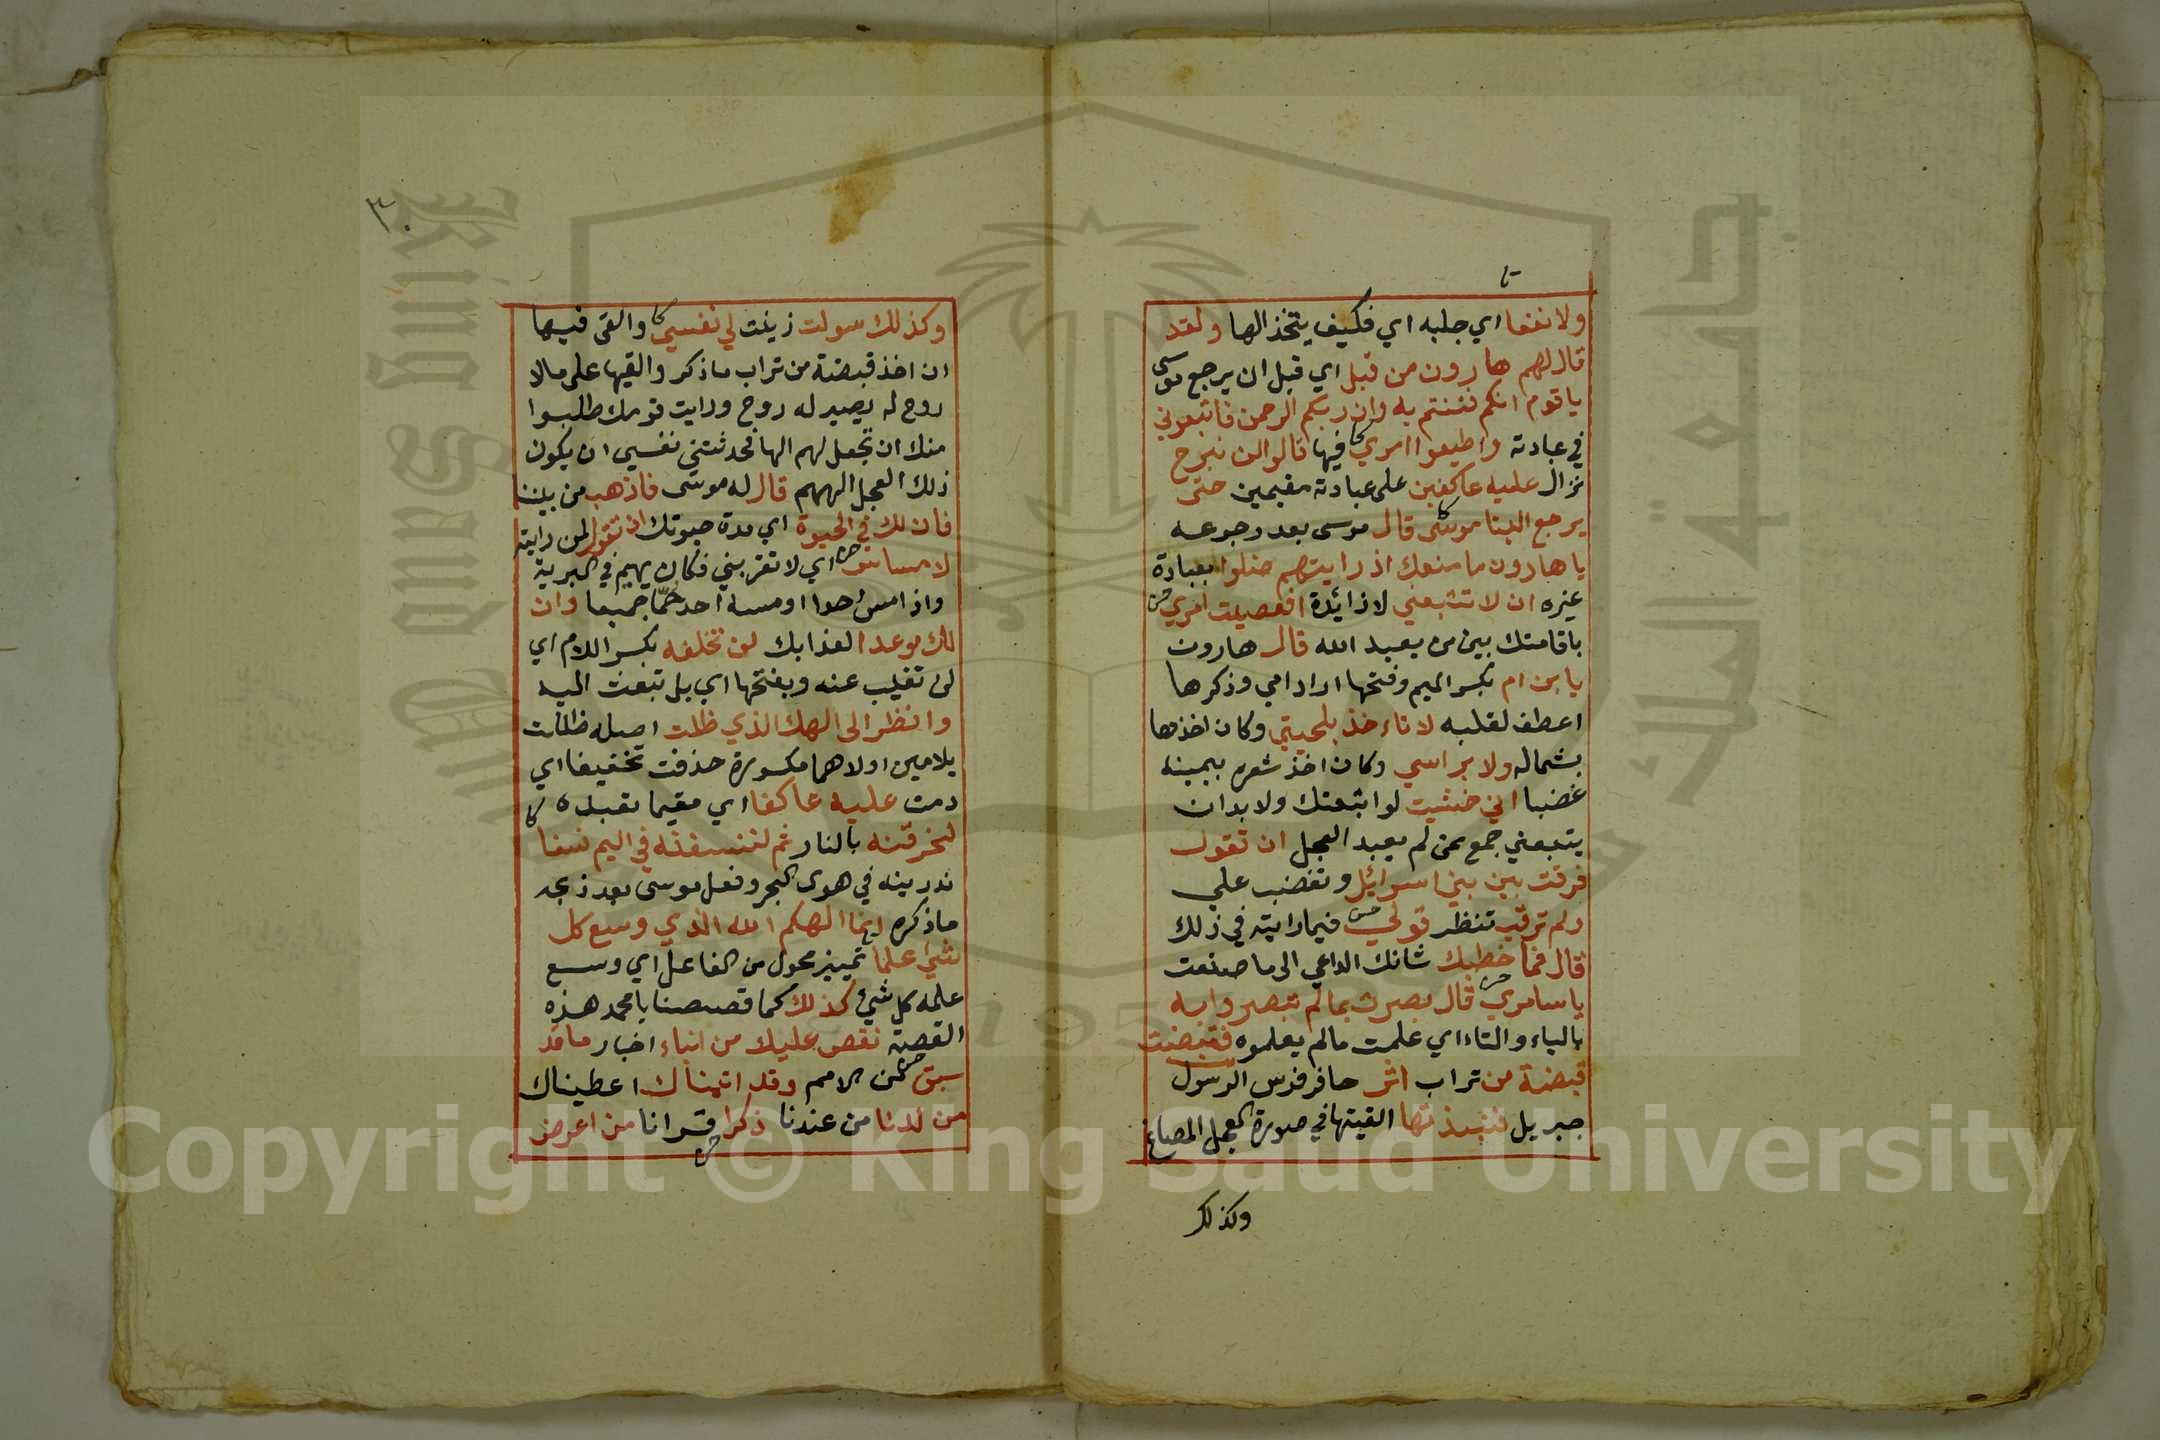 ولا نفعا اي جلبه اي فكيف يتخذ الها ولقد
قال لهم هارون من قبل اي قبل ان يرجع موسى
يا قوم انكم فتنتم به وان ربكم الرحمن فاتبعوني
في عبادته واطيعوا امري فيها قالوا لن نبرح
نزال عليه عاكفين على عبادته مقيمين حتى
يرجع الينا موسى قال موسى بعد رجوعه
يا هارون ما منعك اذ رايتهم ضلوا بعبادة
غيره ان لا تتبعني لا زائدة افعصيت امري
باقامتك بين من يعبد الله قال هارون
يا بن ام بكسر الميم وفتحها اراد امي وذكرها
اعطف لقلبه لا تاء خذ بلحيتي وكان اخذها
بشماله ولا براسي وكان اخذ شعره بيمينه
غضبا اني خشيت لو اتبعتك ولا بد ان
يتبعني جمع ممن لم يعبد العجل ان تقول
فرقت بين بني اسرائيل وتغضب علي
ولم ترقب تنظر قولي فيما رايته في ذلك
قال فما خطبك شانك الداعي الى ما صنعت
يا سامري قال بصرت بما لم تبصروا به
بالياء والتاء اي علمت مالم يعلموه فقبضت
قبضة من تراب اثر حافر فرس الرسول
جبريل فنبذتها القيتها في صورة العجل المصاغ
وكذلك
٣٠
وكذلك سولت زينت لي نفسي والقى فيها
ان اخذ قبضة من تراب ما ذكر والقيها على مالا
روح له يصير له روح ورايت قومك طلبوا
منك ان تجعل لهم الها فحدثتني نفسي ان يكون
ذلك العجل الههم قال له موسى فاذهب من بيننا
فان لك في الحيوة اي مدة حيوتك ان تقول لمن رايته
لا مساس اي لا تقربني فكان يهيم في البرية
واذا مس احدا او مسه احد حما جميعا وان
لك موعدا لعذابك لن تخلفه بكسر اللام اي
لن تغيب عنه وبفتحها اي بل تبعث اليه
وانظر الى الهك الذي ظلت اصله ظللت
بلامين اولاهما مكسورة حذفت تخفيفا اي
دمت عليه عاكفا اي مقيما تعبده
لنحرقنه بالنار ثم لننسفنه في اليم نسفا
نذرينه في هوى البحر وفعل موسى بعد ذبحه
ما ذكره انما الهكم الله الذي وسع كل
شيئ علما تمييز محول من الفاعل اي وسع
علمه كل شيئ كذلك كما قصصنا يا محمد هذه
القصة نقص عليك من انباء اخبار ما قد
سبق من الامم وقد اتيناك اعطيناك
من لدنا من عندنا ذكرا قرانا من اعرض
جامعة الملك سعود
King Saud University
1957
Copyright © King Saud University